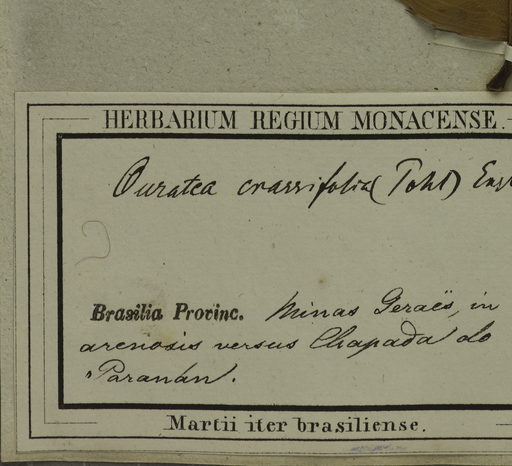 HERBARIUM REGIUM MONACENSE.
Ouratea crassifolia (Pohl) Eng
Brasilia Provinc. Minas Geraës, in
arenosis versus Chapada do
Paranán.
Martii iter brasiliense.